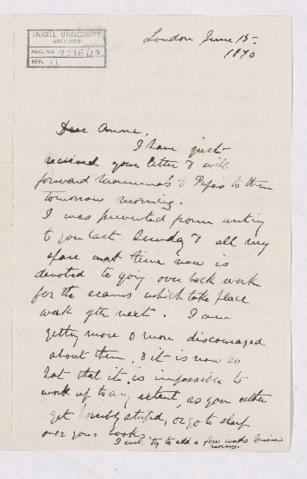 McGILL UNIVERSITY
ARCHIVES
ACC. NO.
REF.
London June 15.
1890
Dear Amme,
I have just
received your letter & will
forward Mamma's & Papa's to them
tomorrow morning.
I was prevented from writing
to you last Sunday & all my
spare time now is
devoted to going over back work
for the exams which take place
week after next. I am
getting more & more discouraged
about them, & it is now so
hot that it is impossible to
work up to any extent, as you either
get horribly stupid, or go to sleep
over your books.
I will try to add a few words